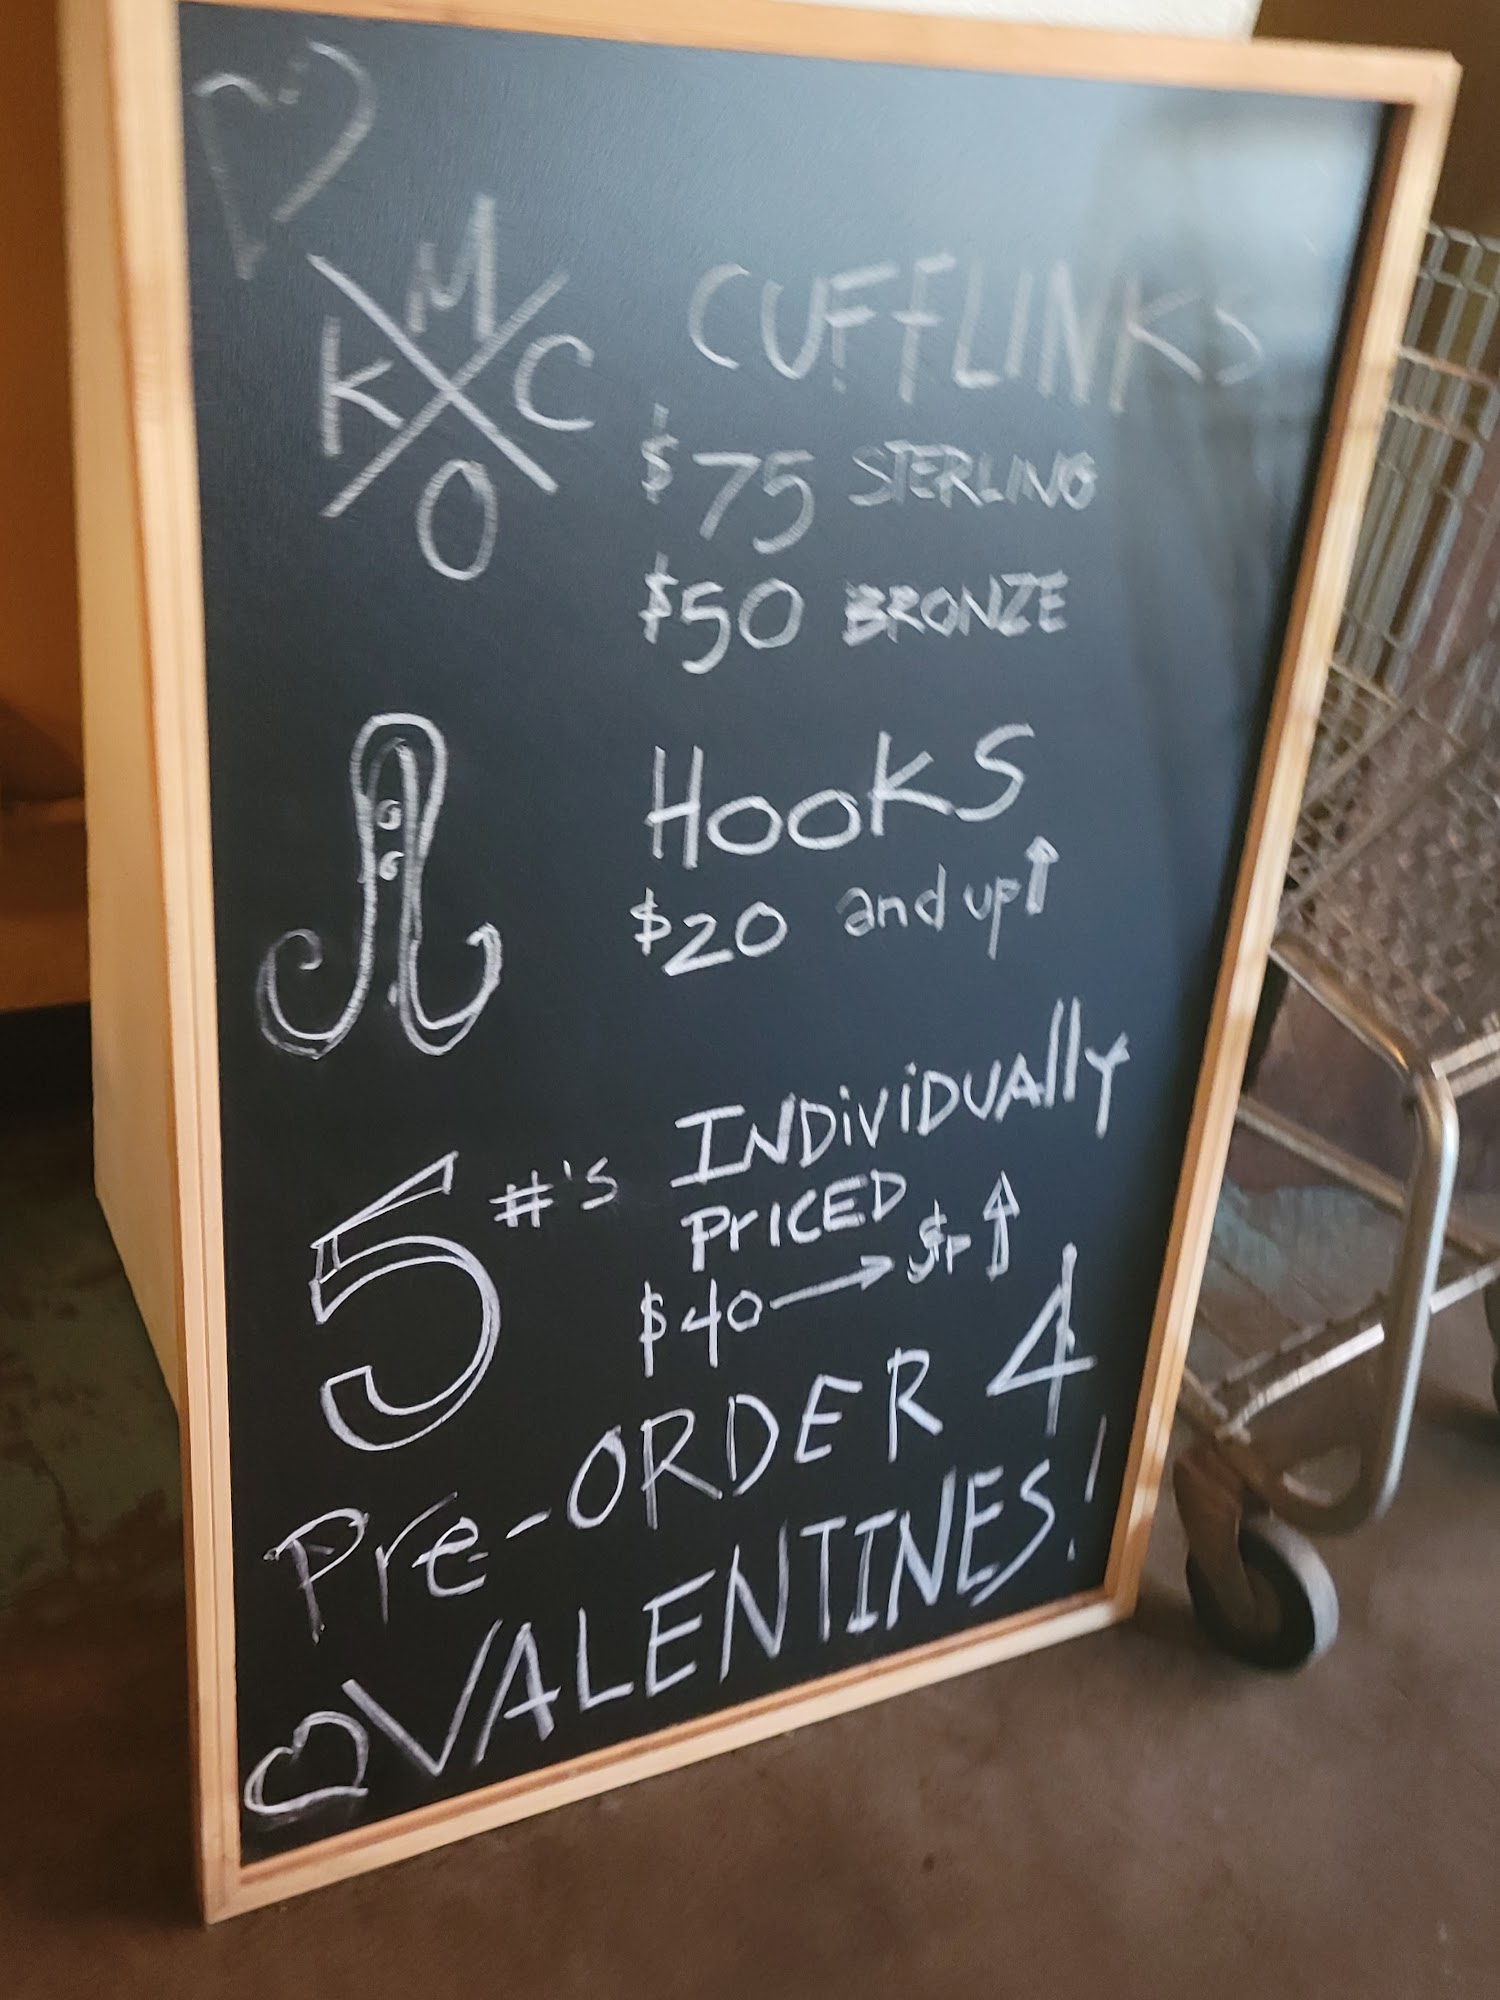 M
K C
O
CUFFLINKS
$75 STERLING
$50 BRONZE
HOOKS
$20 and up
5 #'s INDIVIDUALLY
PRICED
$40
Pre-ORDER 4
VALENTINES!